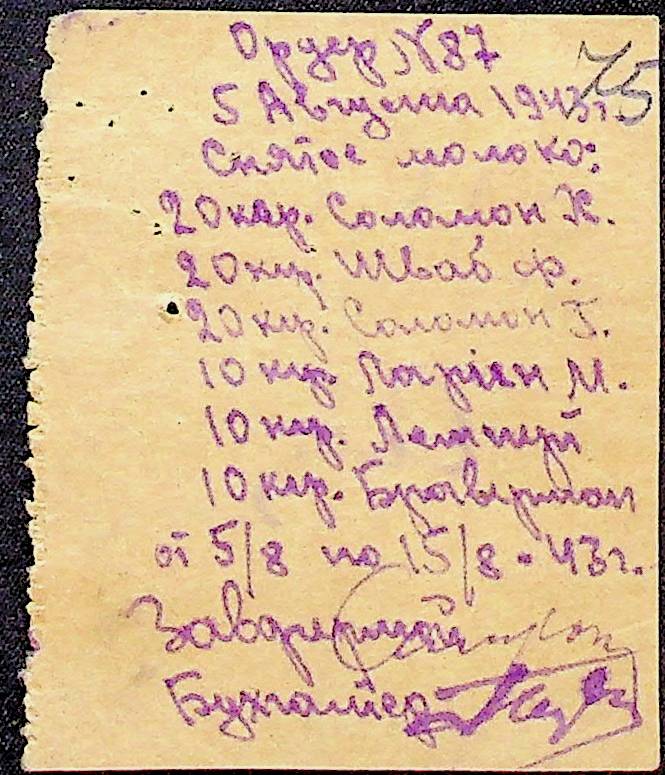 Ордер №87
75
5 Августа 1943г.
Снятое молоко:
20 кар. Соломон К.
20 кар. Шваб Ф.
20 кар. Соломон Г.
10 кар Ларіен М.
10 кар.
10 кар. Браверман
от 5/8 по 15/8 - 43г.
Завфермой
Бухгалтер